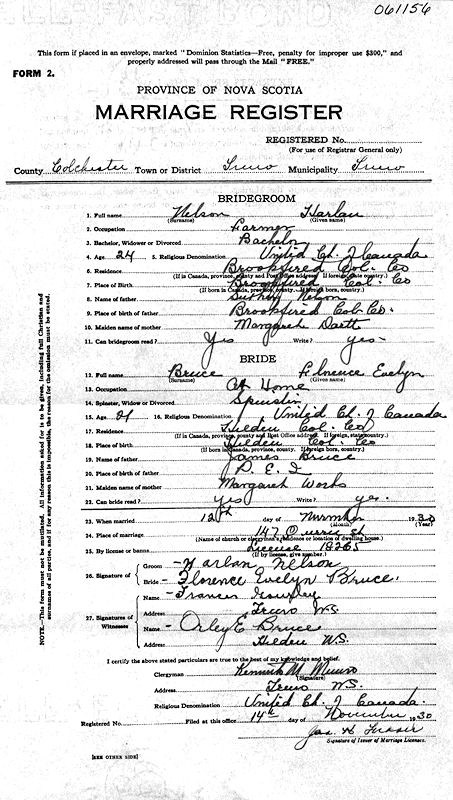 061156
This form if placed in an envelope, marked "Dominion Statistics—Free, penalty for improper use $300," and
properly addressed will pass through the Mail "FREE."
FORM 2.
PROVINCE OF NOVA SCOTIA
MARRIAGE REGISTER
REGISTERED No.
(For use of Registrar General only)
County Colchester Town or District Truro Municipality Truro
BRIDEGROOM
1. Full name Nelson Harlan
(Surname) (Given name)
2. Occupation Farmer
3. Bachelor, Widower or Divorced Bachelor
4. Age 24 5. Religious Denomination United Ch. of Canada
6. Residence Brookfield Col. Co
(If in Canada, province, county and Post Office address. If foreign, state country.)
7. Place of Birth Brookfield Col. Co
(If born in Canada, province, county. If foreign born, country.)
8. Name of father Nelson
9. Place of birth of father Brookfield Col. Co.
10. Maiden name of mother Margaret
11. Can bridegroom read? Yes Write? yes
BRIDE
12. Full name Bruce Florence Evelyn
(Surname) (Given name)
13. Occupation At Home
14. Spinster, Widow or Divorced Spinster
15. Age 21 16. Religious Denomination United Ch. of Canada
17. Residence Hilden Col. Co
(If in Canada, province, county and Post Office address. If foreign, state country.)
18. Place of birth Hilden Col. Co
(If born in Canada, province, county. If foreign born, country.)
19. Name of father James Bruce
20. Place of birth of father P. E. I
21. Maiden name of mother Margaret Works
22. Can bride read? yes Write? yes.
23. When married 12th day of November 1930
(Month) (Year)
24. Place of marriage 147 Queen St
(Name of church or clergyman's residence or location of dwelling house.)
25. By license or banns License 18265
(If by license, give number.)
26. Signature of Groom - Harlan Nelson
Bride - Florence Evelyn Bruce.
27. Signatures of Witnesses Name - Frances
Address Truro N.S.
Name - Orley E Bruce
Address Hilden N.S.
I certify the above stated particulars are true to the best of my knowledge and belief.
Clergyman Kenneth M. Munro
(Signature)
Address Truro N.S.
Religious Denomination United Ch. of Canada.
Registered No. Filed at this office 14th day of November 1930
Jas. H.
Signature of Issuer of Marriage Licenses.
[SEE OTHER SIDE]
NOTE.—This form must not be mutilated. All information asked for is to be given, including full Christian and
surnames of all parties, and if for any reason this is impossible, the reason for the omission must be stated.